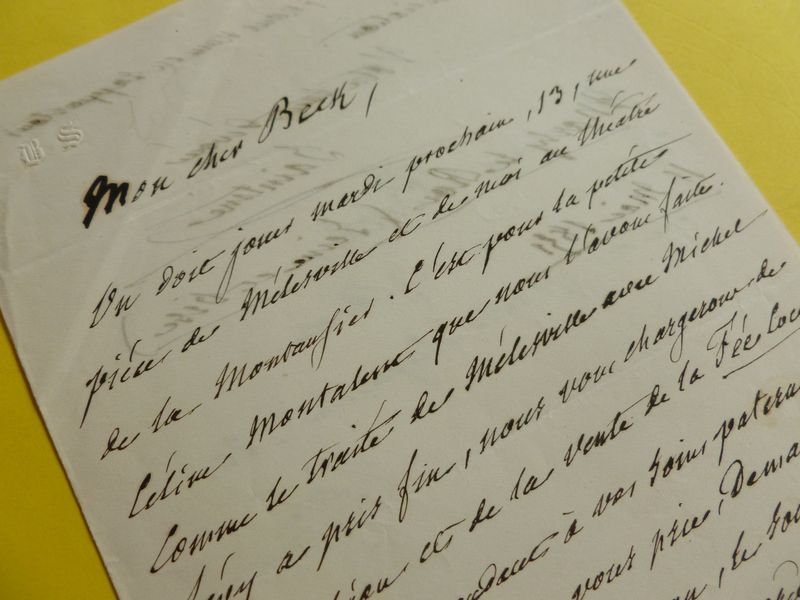 Mon cher Beck,
On doit jouer mardi prochain, 13, une
pièce de Mélesville et de moi au théâtre
de la Montansier. C'est pour la petite
Céline Montaland que nous l'avons faite.
Comme le traité de Mélesville avec Michel
a pris fin, nous vous chargerons de
et de la vente de la Fée Coc
à vos soins paterne
vous prie, Dema
le